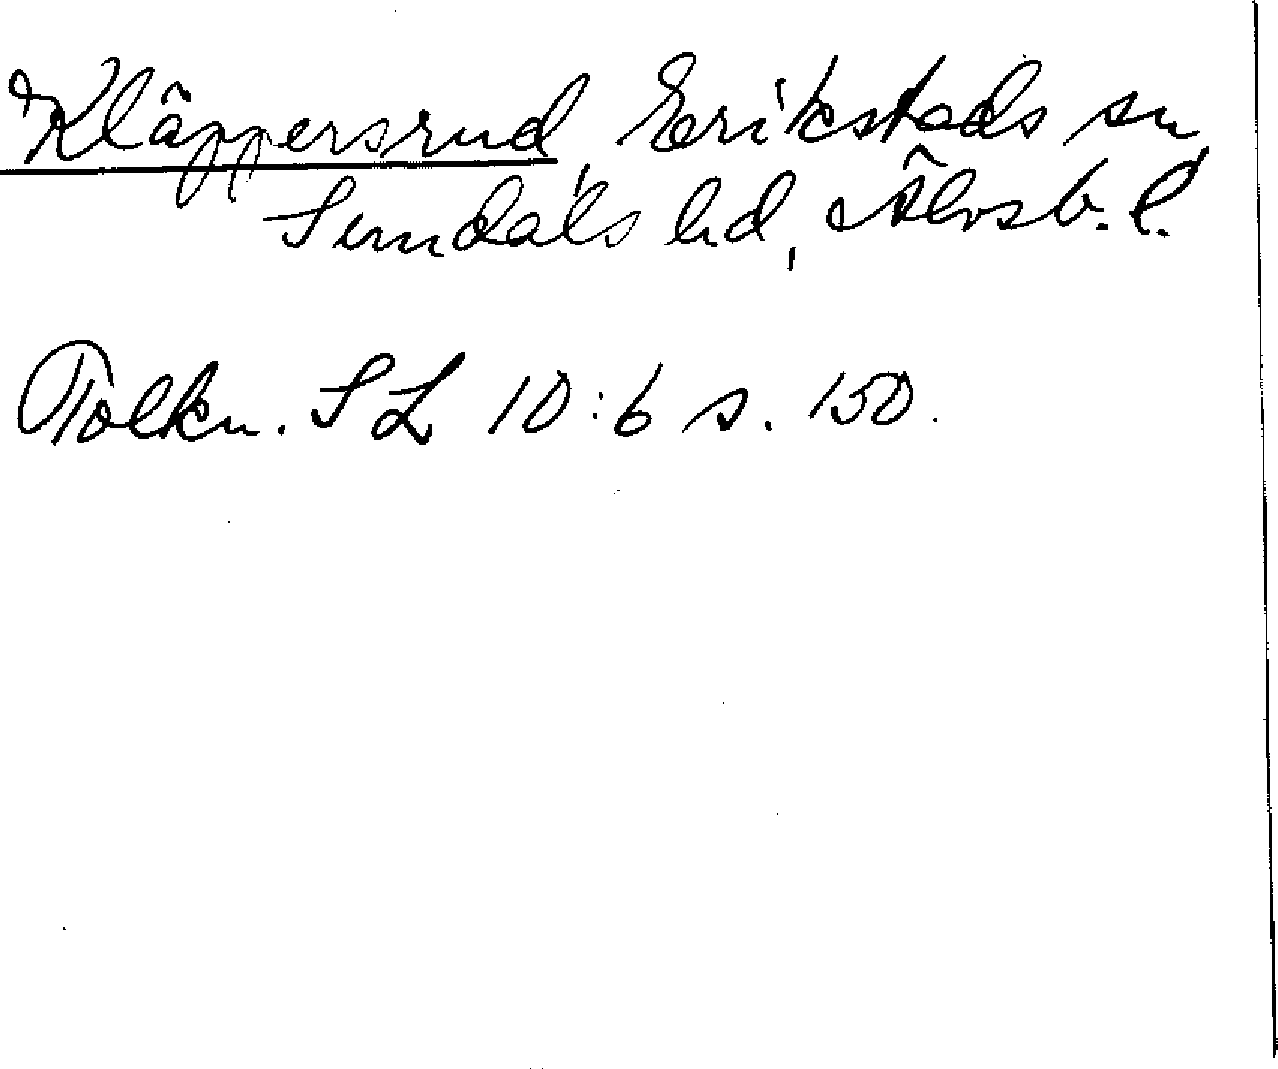 Kläppersrud, Erikstads sn
Sundals hd, Älvsb. l.
Tolkn. SL 10:6 s. 150.